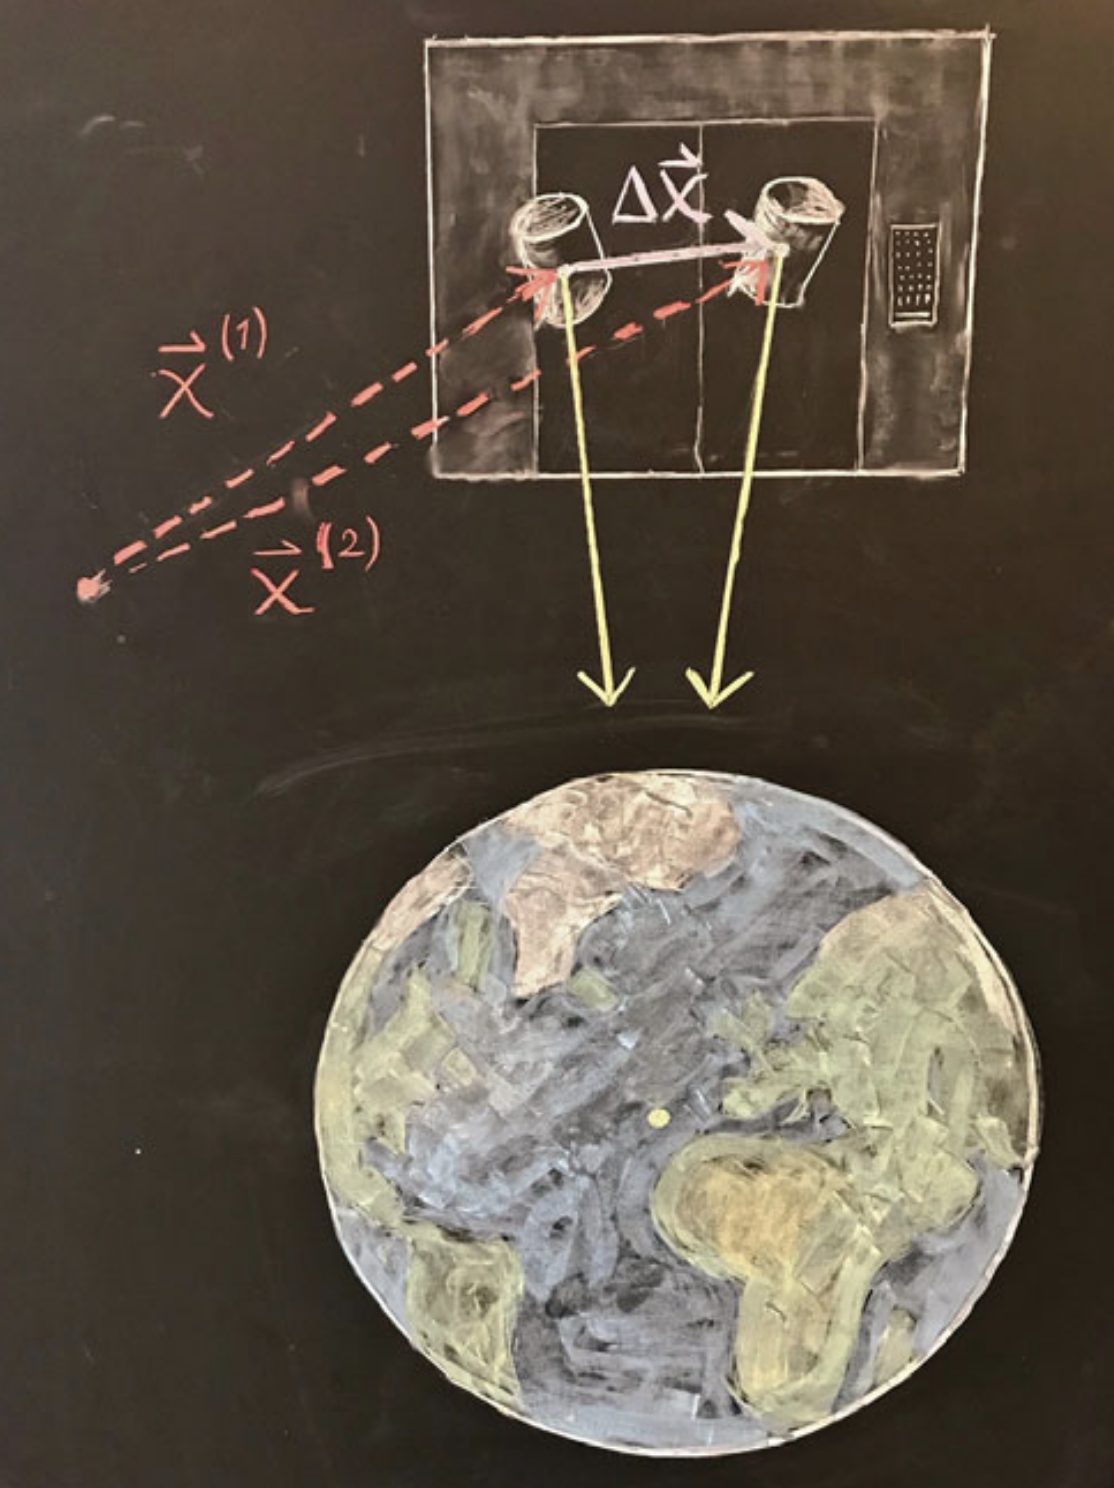 Δx⃗
x⃗⁽¹⁾
x⃗⁽²⁾